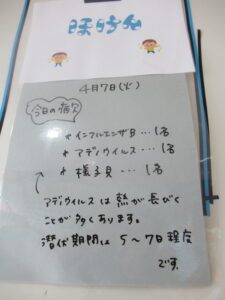 4月7日(火)
今日の病欠
*インフルエンザB…1名
*アデノウイルス…1名
*様子見…1名
アデノウイルスは熱が長びく
ことが多くあります。
潜伏期間は5〜7日程度
です。